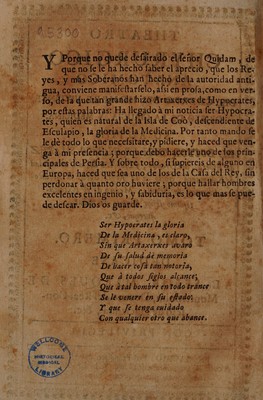 Y Porque no quede desairado el señor Quidam, de
que no se le ha hecho saber el aprecio, que los Re-
yes, y mas Soberanos han hecho de la autoridad anti-
gua, conviene manifestarselo, assi en prosa, como en ver-
so, de la que tan grande hizo Artaxerxes de Hypocrates,
por estas palabras: Ha llegado à mi noticia ser Hypocra-
tes, quien es natural de la Isla de Coò, descendiente de
Esculapio, la gloria de la Medicina. Por tanto mando se
le dè todo lo que necessitare, y pidiere, y haced que ven-
ga à mi presencia; porque debo hacerle uno de los prin-
cipales de Persia. Y sobre todo, si supiereis de alguno en
Europa, haced que sea uno de los de la Casa del Rey, sin
perdonar à quanto oro huviere; porque hallar hombres
excelentes en ingenio, y sabiduria, es lo que mas se pue-
de desear. Dios os guarde.
Ser Hypocrates la gloria
De la Medicina, es claro,
Sin que Artaxerxes avaro
De su salud de memoria
De hacer cosa tan notoria,
Que à todos siglos alcance,
Que à tal hombre en todo trance
Se le venere en su estado;
Y que se tenga cuidado
Con qualquier otro que abance.
WELLCOME
HISTORICAL
MEDICAL
LIBRARY